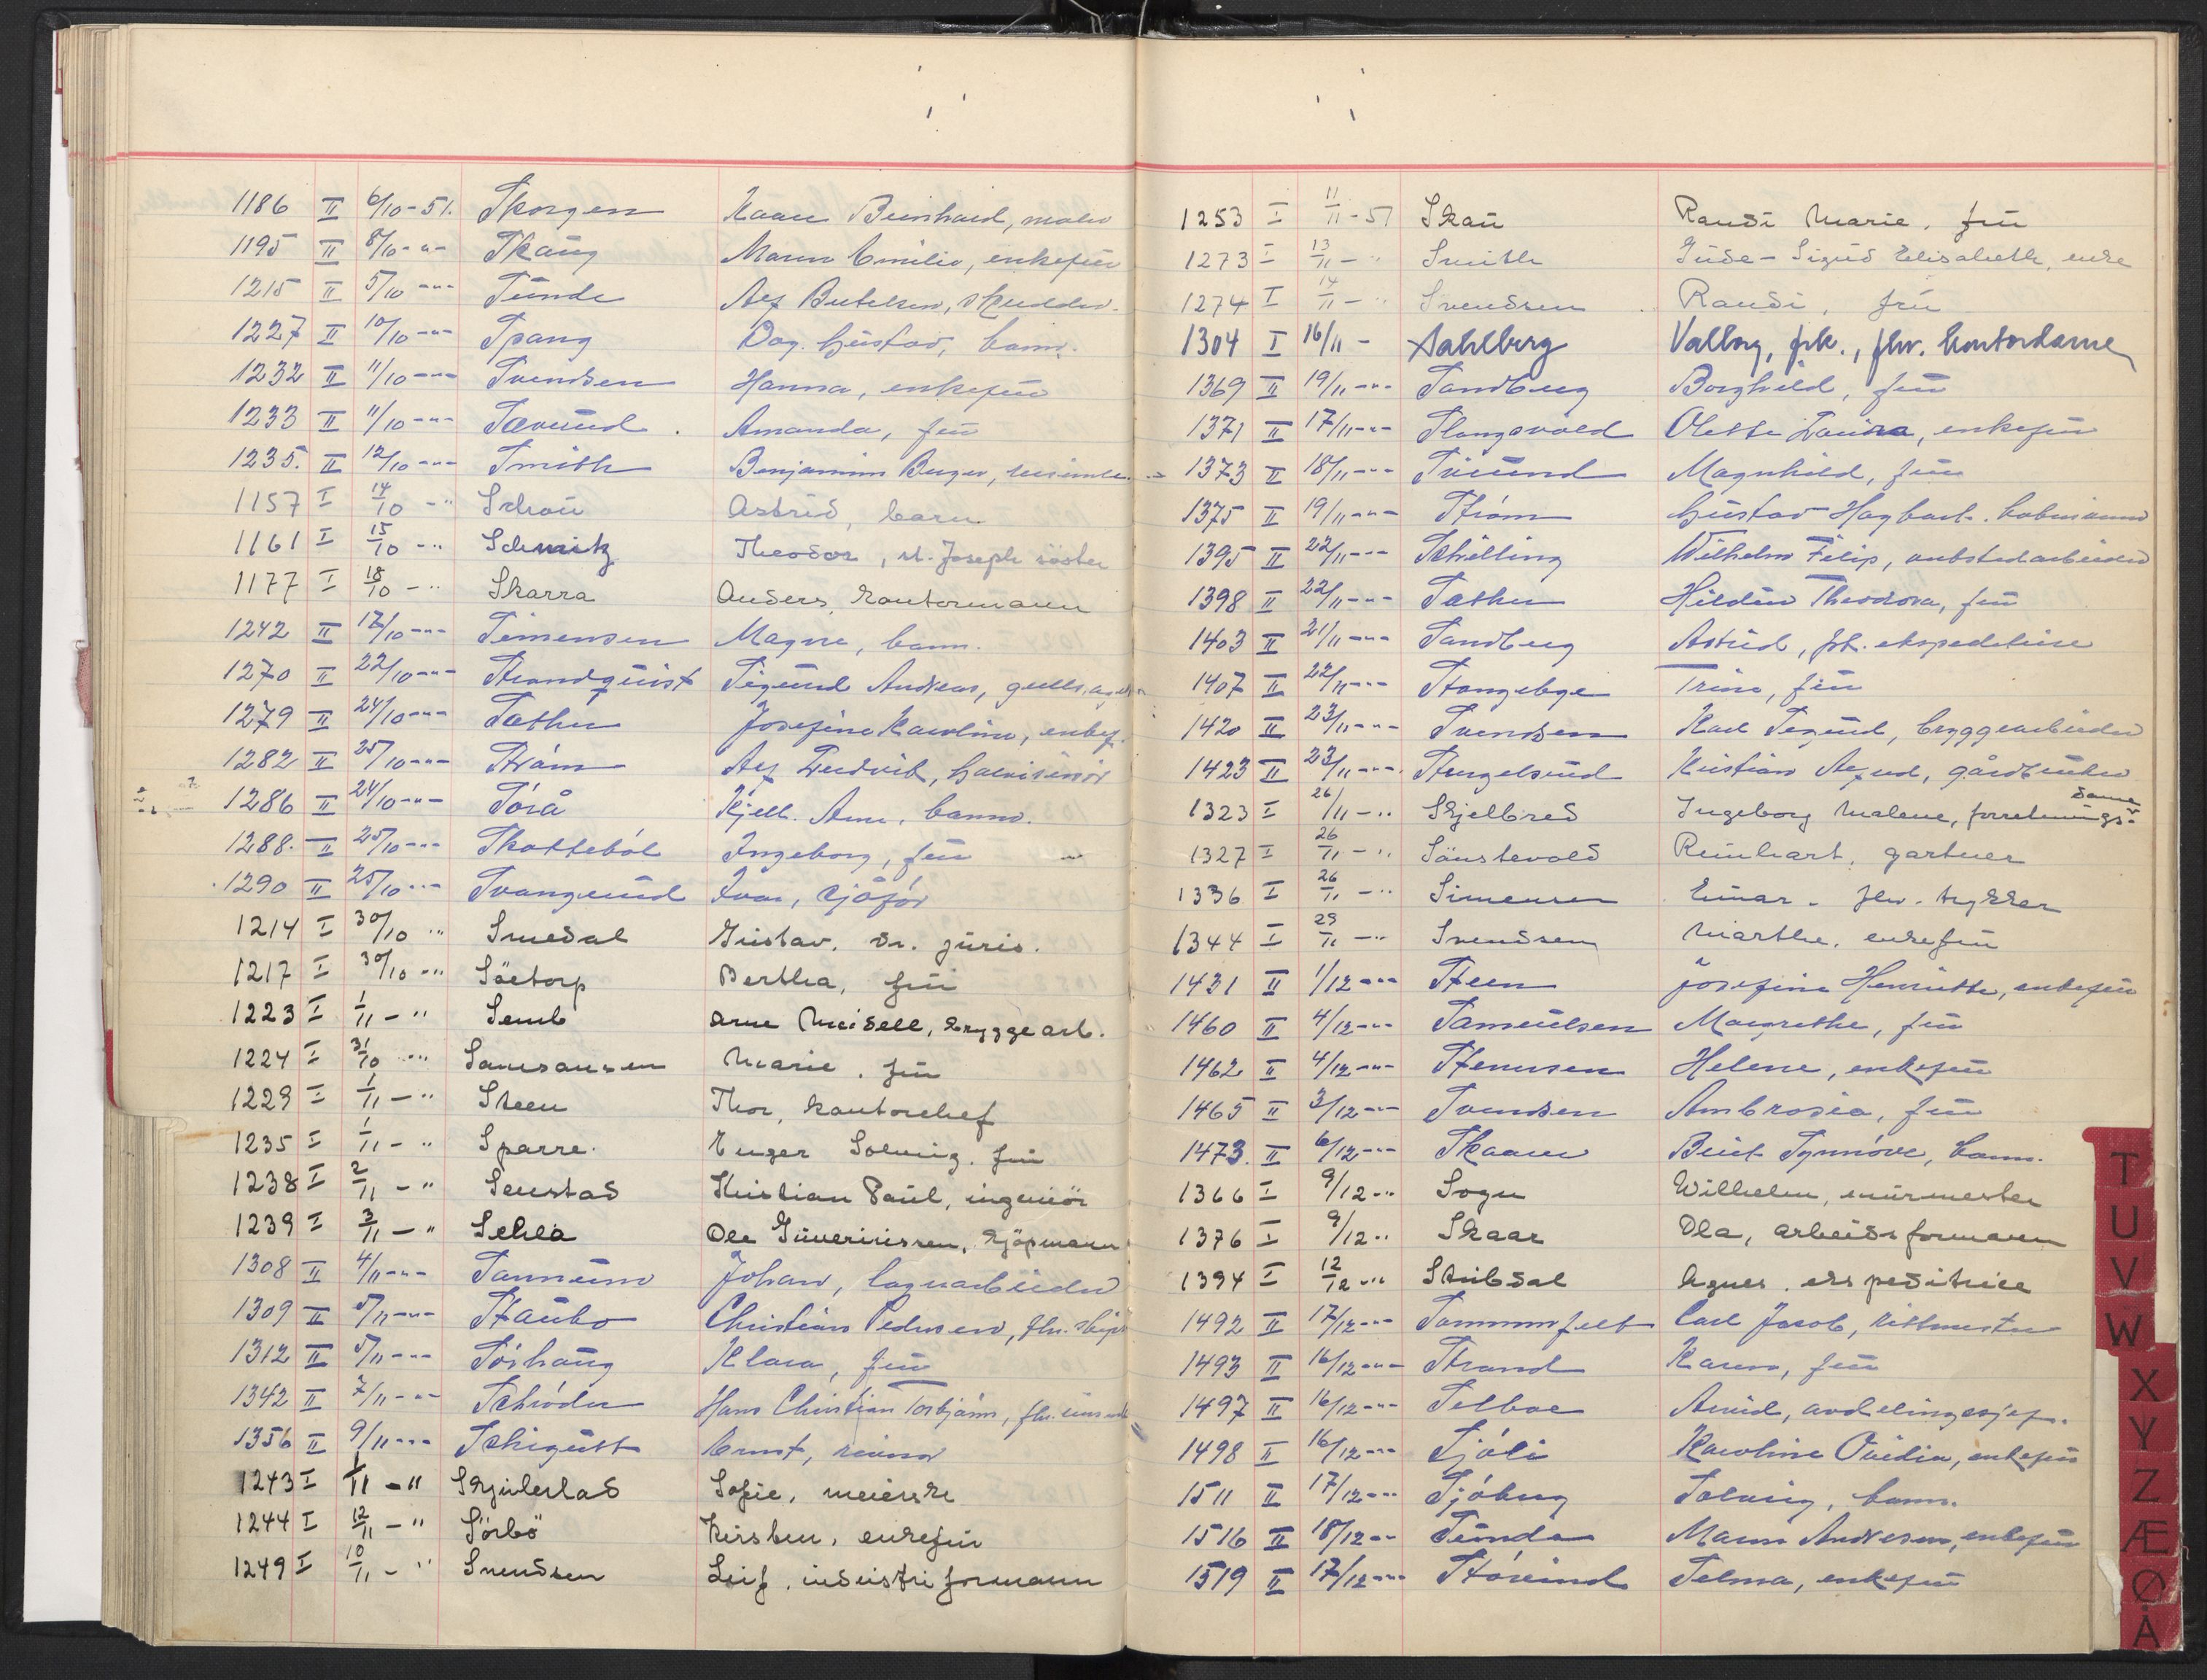 1186 II 6/10-51. Skorgen Kaare Bernhard, maler
1195 II 8/10-"- Skaug Maren Emilie, enkefru
1215 II 5/10-"- Sunde Alf Bertelsen,
1227 II 10/10-"- Spang Dag. Gustav, barn.
1232 II 11/10-"- Svendsen Hanna, enkefru
1233 II 11/10-"- Sævund. Amanda, fru
1235. II 12/10-"- Smith Benjamin Burger,
1157 I 14/10 -" Schou Astrid, barn
1161 I 15/10 -" Schmitz Theodora, st. Joseph söster
1177 I 18/10 -" Skarra Anders, kontormann
1242 II 17/10-"- Simensen Magne, barn.
1270 II 22/10-"- Strandquist Sigurd Andreas,
1279 II 24/10-"- Sæther Josefine Karoline, enkef.
1282 II 25/10-"- Strøm Alf Ludvik,
1286 II 24/10-"- Sørå Kjell. Arne, barn.
1288. II 25/10-"- Skottebøl Ingeborg, fru
1290 II 25/10-"- Svangrund Ivar, sjåfør
1214 I 30/10 " Smedal Gustav. dr. juris.
1217 I 30/10 -" Säetorp Bertha, fru
1223 I 1/11 -" Semb Arne Meidell, bryggearb.
1224 I 31/10 -" Samsonsen Marie, fru
1229 I 1/11 -" Steen Thor, kontorchef
1235 I 1/11 -" Sparre. Enger Solveig. fru
1238 I 2/11 -" Senstad Kristian Paul, ingeniör
1239 I 3/11 -" Sehla Ole Guveriussen, kjöpmann
1308 II 4/11-"- Sannum Johan, lagerarbeider
1309 II 5/11-"- Staubo Christian Pedersen, fhv. skips
1312 II 5/11-"- Sørhaug Klara, fru
1342 II 7/11-"- Schrøder Hans Christian Torbjørn, fhv.
1356 II 9/11-"- Schigutt Ernst, revisor
1243 I 1/11 -" Skjulestad Sofie, meierske
1244 I 12/11 -" Sörbö Kirsten, enkefru
1249 I 10/11 -" Svendsen Leif, industriformann
1253 I 11/11-51 Skau Randi Marie, fru
1273 I 13/11 -" Smith Gude- Sigrid Elisabeth, enke
1274 I 14/11 -" Svendsen Randi, fru
1304 I 16/11 - Sahlberg Valborg, frk., fhv. kontordame
1369 II 19/11-"- Sandberg Borghild, fru
1371 II 17/11-"- Slangsvold Olette Laura, enkefru
1373 II 18/11-"- Magnhild, fru
1375 II 19/11-"- Strøm Gustav Hagbart.
1395 II 22/11-"- Schilling Wilhelm Filip,
1398 II 22/11-"- Sæther Hildur Theodora, fru
1403 II 21/11-"- Sandberg Astrid, frk. ekspeditrise
1407 II 22/11-"- Stangebye Trine, fru
1420 II 23/11-"- Svendsen Karl Sigurd, bryggearbeider
1423 II 23/11-"- Strngelsrud Kristian Alfred, gårdbruker
1323 I 26/11 -" Skjelbred Ingeborg Malene, forretnings- dame
1327 I 26/11 -" Sönstevold Reinhart, gartner
1336 I 26/11 -" Simensen Einar. fhv. trykker
1344 I 29/11 -" Svendsen Marthe. enkefru
1431 II 1/12-"- Steen Josefine Henriette, enkefru
1460 II 4/12-"- Samuelsen Margrethe, fru
1462 II 4/12-"- Stenersen Helene, enkefru
1465 II 3/12-"- Svendsen Ambrosia, fru
1473. II 6/12-"- Skaare Berit Synnøve, barn.
1366 I 9/12-" Sogn Wilhelm, murmester
1376 I 9/12" Skaar Ola, arbeidsformann
1394 I 12/12-" Stubdal Agnes. ekspeditrice
1492 II 17/12-"- Sommerfelt Carl Jacob, rittmester
1493 II 16/12-"- Strand Karen, fru
1497 II 16/12-"- Selboe Arvid, avdelingssjef.
1498 II 16/12-"- Sjøli Karoline Ovidia, enkefru
1511 II 17/12-"- Sjøberg Solveig, barn.
1516 II 18/12-"- Sunde Maren Andresen, enkefru
1519 II 17/12-"- Størsrud Selma, enkefru
T
U
V
W
X
Y
Z
Æ
Ø
Å